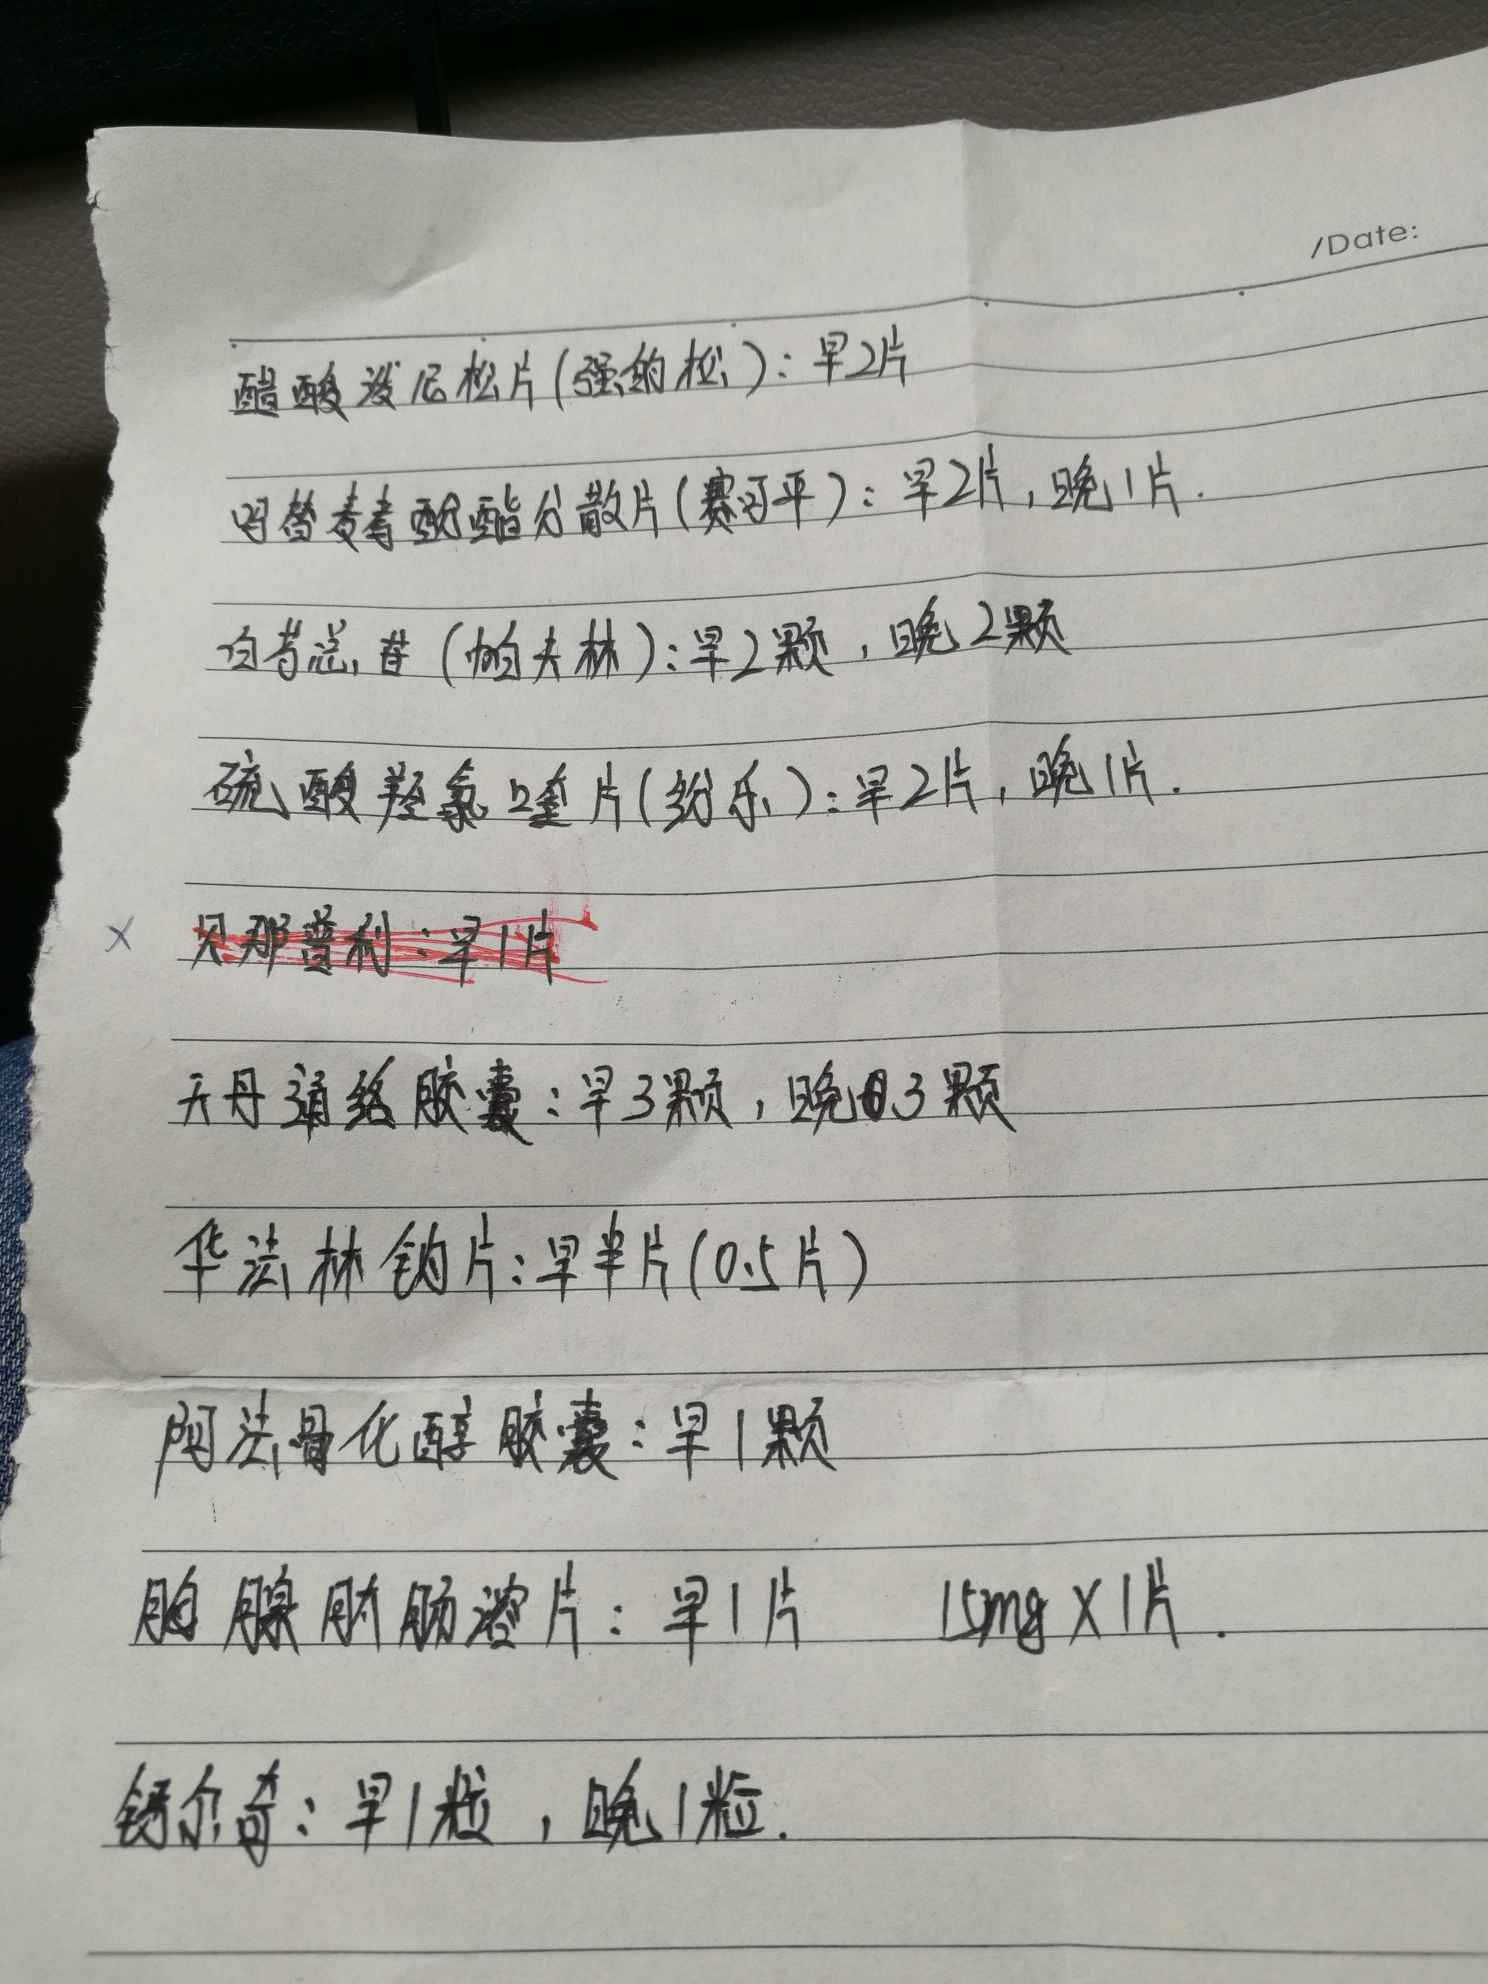 /Date:
醋酸泼尼松片(强的松):早2片
吗替麦考酚酯分散片(赛可平):早2片,晚1片.
白芍总苷(帕夫林):早2颗,晚2颗
硫酸羟氯喹片(纷乐):早2片,晚1片.
× 贝那普利:早1片
天丹通络胶囊:早3颗,晚3颗
华法林钠片:早半片(0.5片)
阿法骨化醇胶囊:早1颗
胰肠溶片:早1片 15mg×1片.
钙尔奇:早1粒,晚1粒.